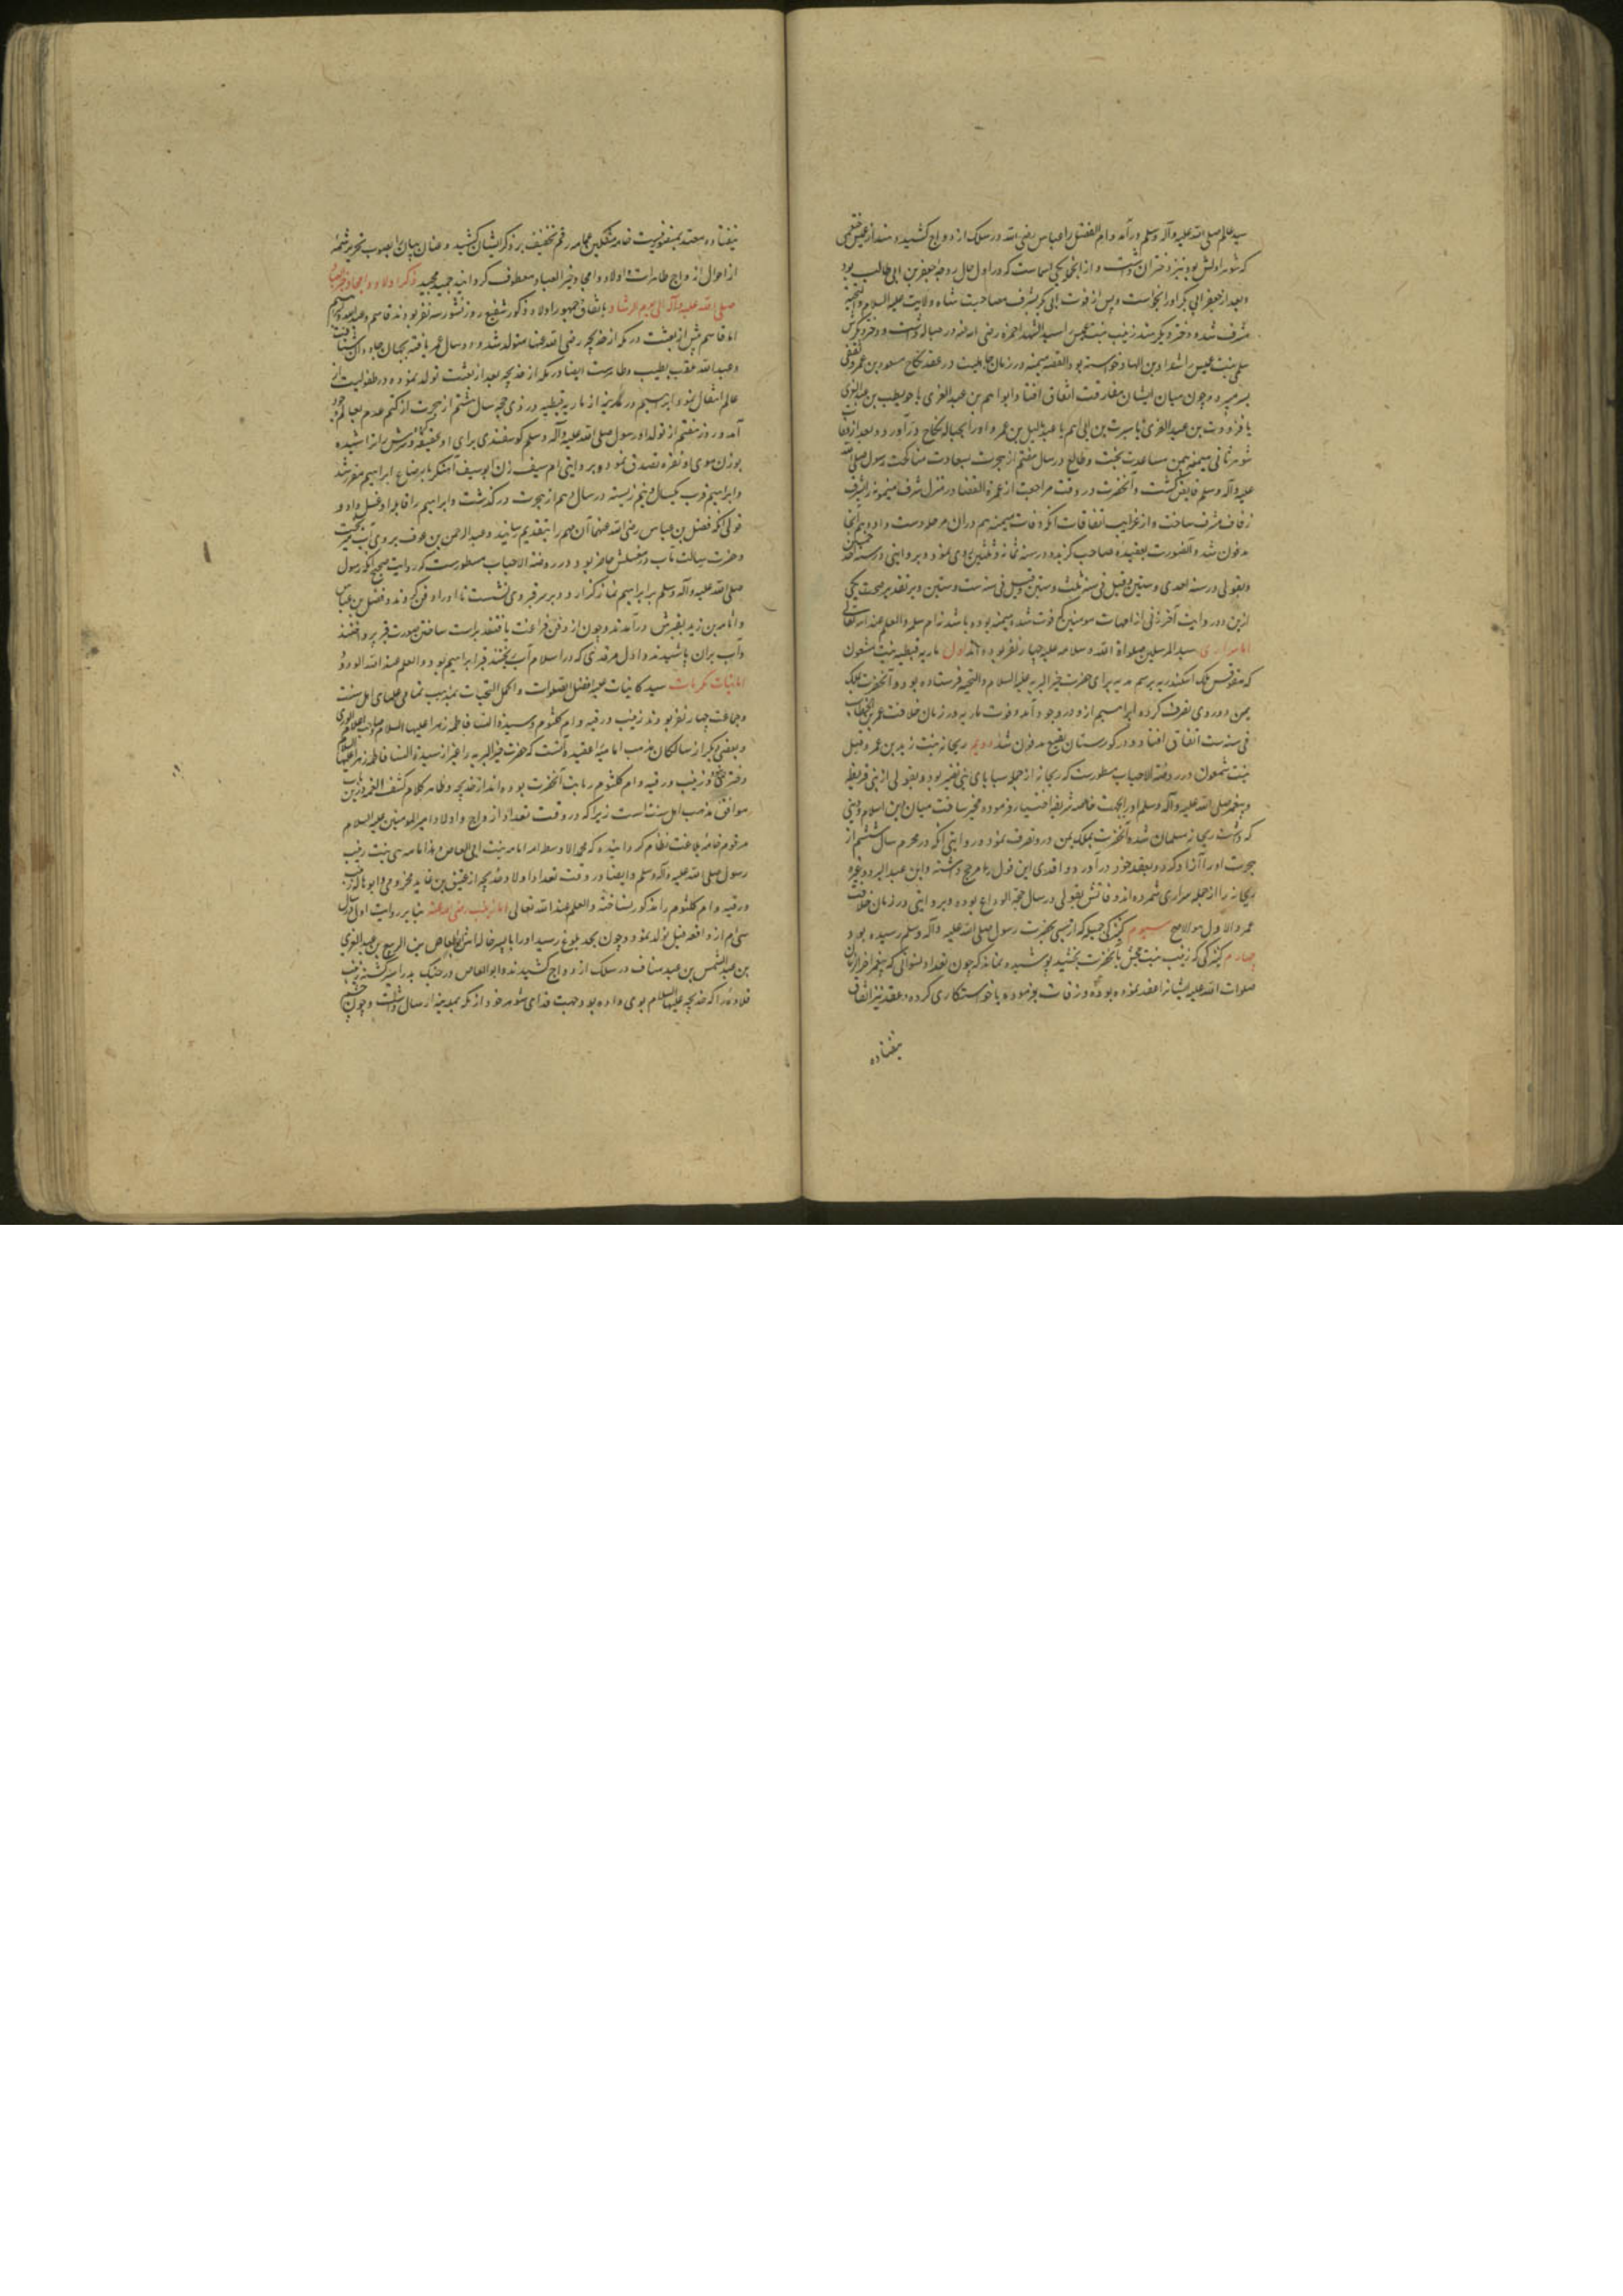 سید عالم صلی الله علیه وآله وسلم درآمد وام الفضل را عباس رضی الله در سلک ازدواج کشید و هند از عمیس خثعمی
که شوهر اولش بود نیز دختران داشت و از آنجمله یکی اسماست که در اول حال زوجه جعفر بن ابی طالب بود
وبعد از جعفر ابی بکر اورا بخواست و پس از فوت ابی بکر بشرف مصاحبت شاه ولایت علیه السلام والتحیه
مشرف شد و دختر دیگر هند زینب بنت عمیس اسید الشهدا حمزه رضی الله عنه در حباله داشت و دختر دیگرش
سلمی بنت عمیس را شداد بن الهاد خواسته بود القصه میمنه در زمان جاهلیت در عقد نکاح مسعود بن عمرو ثقفی
بسر میبرد و چون میان ایشان مفارقت اتفاق افتاد ابو رهم بن عبد العزی یا حویطب بن عبد العزی
یا فروه بن عبد العزی یا سبرة بن ابی رهم یا عبد یالیل بن عمرو اورا بحباله نکاح درآورد و بعد از وفات
شوهر ثانی میمنه بیمن مساعدت بخت و طالع در سال هفتم از هجرت بسعادت مناکحت رسول صلی الله
علیه وآله وسلم فایض گشت و آنحضرت در وقت مراجعت از عمرة القضا در منزل سرف میمونه را بشرف
زفاف مشرف ساخت و از غرایب اتفاقات آنکه وفات میمنه هم دران مرحله دست داد و هم آنجا
مدفون شد و آنصورت بعقیده صاحب گزیده در سنه ثمانه و ثلثین روی نمود و بروایتی در سنه
وبقولی در سنه احدی وستین وقیل فی سنه ثلث وستین وقیل فی سنه ست وستین وبر تقدیر صحت یکی
ازین دو روایت آخر زنی از امهات مومنین که فوت شد میمنه بوده باشد نه ام سلمه والعلم عند الله تعالی
اما سراری سید المرسلین صلواة الله وسلامه علیه چهار نفر بوده اند اول ماریه قبطیه بنت شمعون
که مقوقس ملک اسکندریه برسم هدیه برای حضرت خیر البریه علیه السلام والتحیه فرستاده بود و آنحضرت بملک
یمین در وی تصرف کرده ابراهیم ازو در وجود آمد وفوت ماریه در زمان خلافت عمر بن الخطاب
فی سنه ست اتفاق افتاد و در کورستان بقیع مدفون شد دویم ریحانه بنت زید بن عمرو وقیل
بنت شمعون در روضة الاحباب مسطورست که ریحانه از جمله سبایای بنی نضیر بود و بقولی از بنی قریظه
وپیغمبر صلی الله علیه وآله وسلم اورا بجهت خاصه شریفه اختیار فرموده مخیر ساخت میان دین اسلام و دینی
که داشت ریحانه مسلمان شده آنحضرت بملک یمن درو تصرف نمود و روایتی آنکه در محرم سال ششم از
هجرت اورا آزاد کرده بعقد خود درآورد و واقدی این قول را مرجح داشته وابن عبد البر وغیره
ریحانه را از جمله سراری شمرده اند وفاتش بقولی در سال حجة الوداع بوده وبروایتی در زمان خلافت
عمر والاول هو الاصح سیوم کنیزکی جمیله که از سبی بحضرت رسول صلی الله علیه وآله وسلم رسیده بود و
چهارم کنیزکی که زینب بنت جحش بآنحضرت بخشید پوشیده نماند که چون تعداد نسوانی که پیغمبر آخر الزمان
صلوات الله علیه ایشانرا عقد نموده بوده و زفاف نفرموده یا خواستکاری کرده و عقد نیز اتفاق
نیفتاده
نیفتاده معتد بمنفعتی نیست خامه مشکین عمامه رقم تخفیف بر ذکر ایشان کشید وعنان بیان را بصوب تحریر شمه
از احوال ازواج طاهرات و اولاد وامجاد خیر العباد معطوف کردانید ذکر اولاد و امجاد
صلی الله علیه وآله الی یوم الرشاد باتفاق جمهور اولاد ذکور شفیع روز نشور سه نفر بودند قاسم و عبد الله و ابراهیم
اما قاسم پیش از بعثت در مکه از خدیجه رضی الله عنها متولد شد و دو سال عمر یافته بجهان جاودان شتافت
وعبد الله ملقب بطیب و طاهرست ایضا در مکه از خدیجه بعد از بعثت تولد نموده در طفولیت از
عالم انتقال نمود و ابراهیم در مدینه از ماریه قبطیه در ذی حجه سال هشتم از هجرت از کتم عدم بعالم وجود
آمد و روز هفتم از تولد او رسول صلی الله علیه وآله وسلم کوسفندی برای او عقیقه کرد و سرش را تراشیده
بوزن موی او نقره تصدق نمود و بروایتی ام سیف زن ابو سیف آهنکر بارضاع ابراهیم مقرر شد
وابراهیم قریب یکسال و نیم زیسته در سال دهم از هجرت در گذشت وابراهیم را قابله او غسل داد و
قولی آنکه فضل بن عباس رضی الله عنهما آن مهم را بتقدیم رسانید و عبد الرحمن بن عوف بروی آب میریخت
وحضرت رسالت مآب در مجلس حاضر بود و در روضة الاحباب مسطورست که روایت صحیح آنکه رسول
صلی الله علیه وآله وسلم بر ابراهیم نماز گذارد و بر سر قبر وی نشست تا اورا دفن کردند و فضل بن عباس
واسامه بن زید بقبرش درآمدند و چون از دفن فراغت یافتند براست ساختن صورت قبر پرداختند
وآب بران پاشیدند و اول مرقدی که در اسلام آب ریختند قبر ابراهیم بود والعلم عند الله الودود
اما بنات مکرمات سید کاینات علیه افضل الصلوات واکمل التحیات بمذهب تمامی علمای اهل سنت
وجماعت چهار نفر بودند زینب و رقیه وام کلثوم وسیدة النسا فاطمه زهرا علیها السلام صاحب اعلام الوری
و بعضی دیگر از سالکان مذهب امامیه را عقیده آنست که حضرت خیر البریه را غیر از سیدة النسا فاطمه زهرا علیها السلام
دختر نبود و زینب ورقیه وام کلثوم ربایب آنحضرت بوده اند از خدیجه وظاهر کلام کشف الغمه درین
موافق مذهب اهل سنت است زیرا که در وقت تعداد ازواج واولاد امیر المومنین علیه السلام
مرقوم خامه بلاغت نظام کردانیده که محمد الاوسط امه امامه بنت ابی العاص وهذا امامه هی بنت زینب
رسول صلی الله علیه وآله وسلم وایضا در وقت تعداد اولاد خدیجه از عتیق بن عاید مخزومی وابو هاله زینب
ورقیه وام کلثوم را مذکور نساخته والعلم عند الله تعالی اما زینب رضی الله عنها بنابر روایت اول در سال
سی ام از واقعه فیل تولد نمود و چون بحد بلوغ رسید اورا با پسر خاله اش ابو العاص بن الربیع بن عبد العزی
بن عبد الشمس بن عبد مناف در سلک ازدواج کشیدند و ابو العاص در جنک بدر اسیر گشته زینب
قلاده را که خدیجه علیها السلام بوی داده بود جهت فدای شوهر خود از مکه بمدینه ارسال داشت و چون چشم